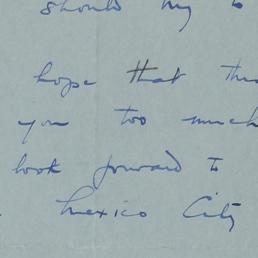 should my to
hope that this
you too much
look forward to
Mexico City